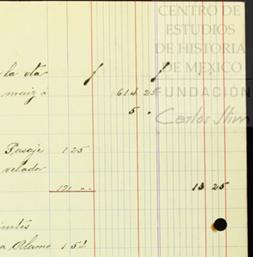 CENTRO DE
ESTUDIOS
DE HISTORIA
la cta
DE MEXICO
maiz a 614 25
FUNDACIÓN
5 "
Carlos Slim
Pasaje 1 25
velada
121 " " 13 25
a Alamo 1 53